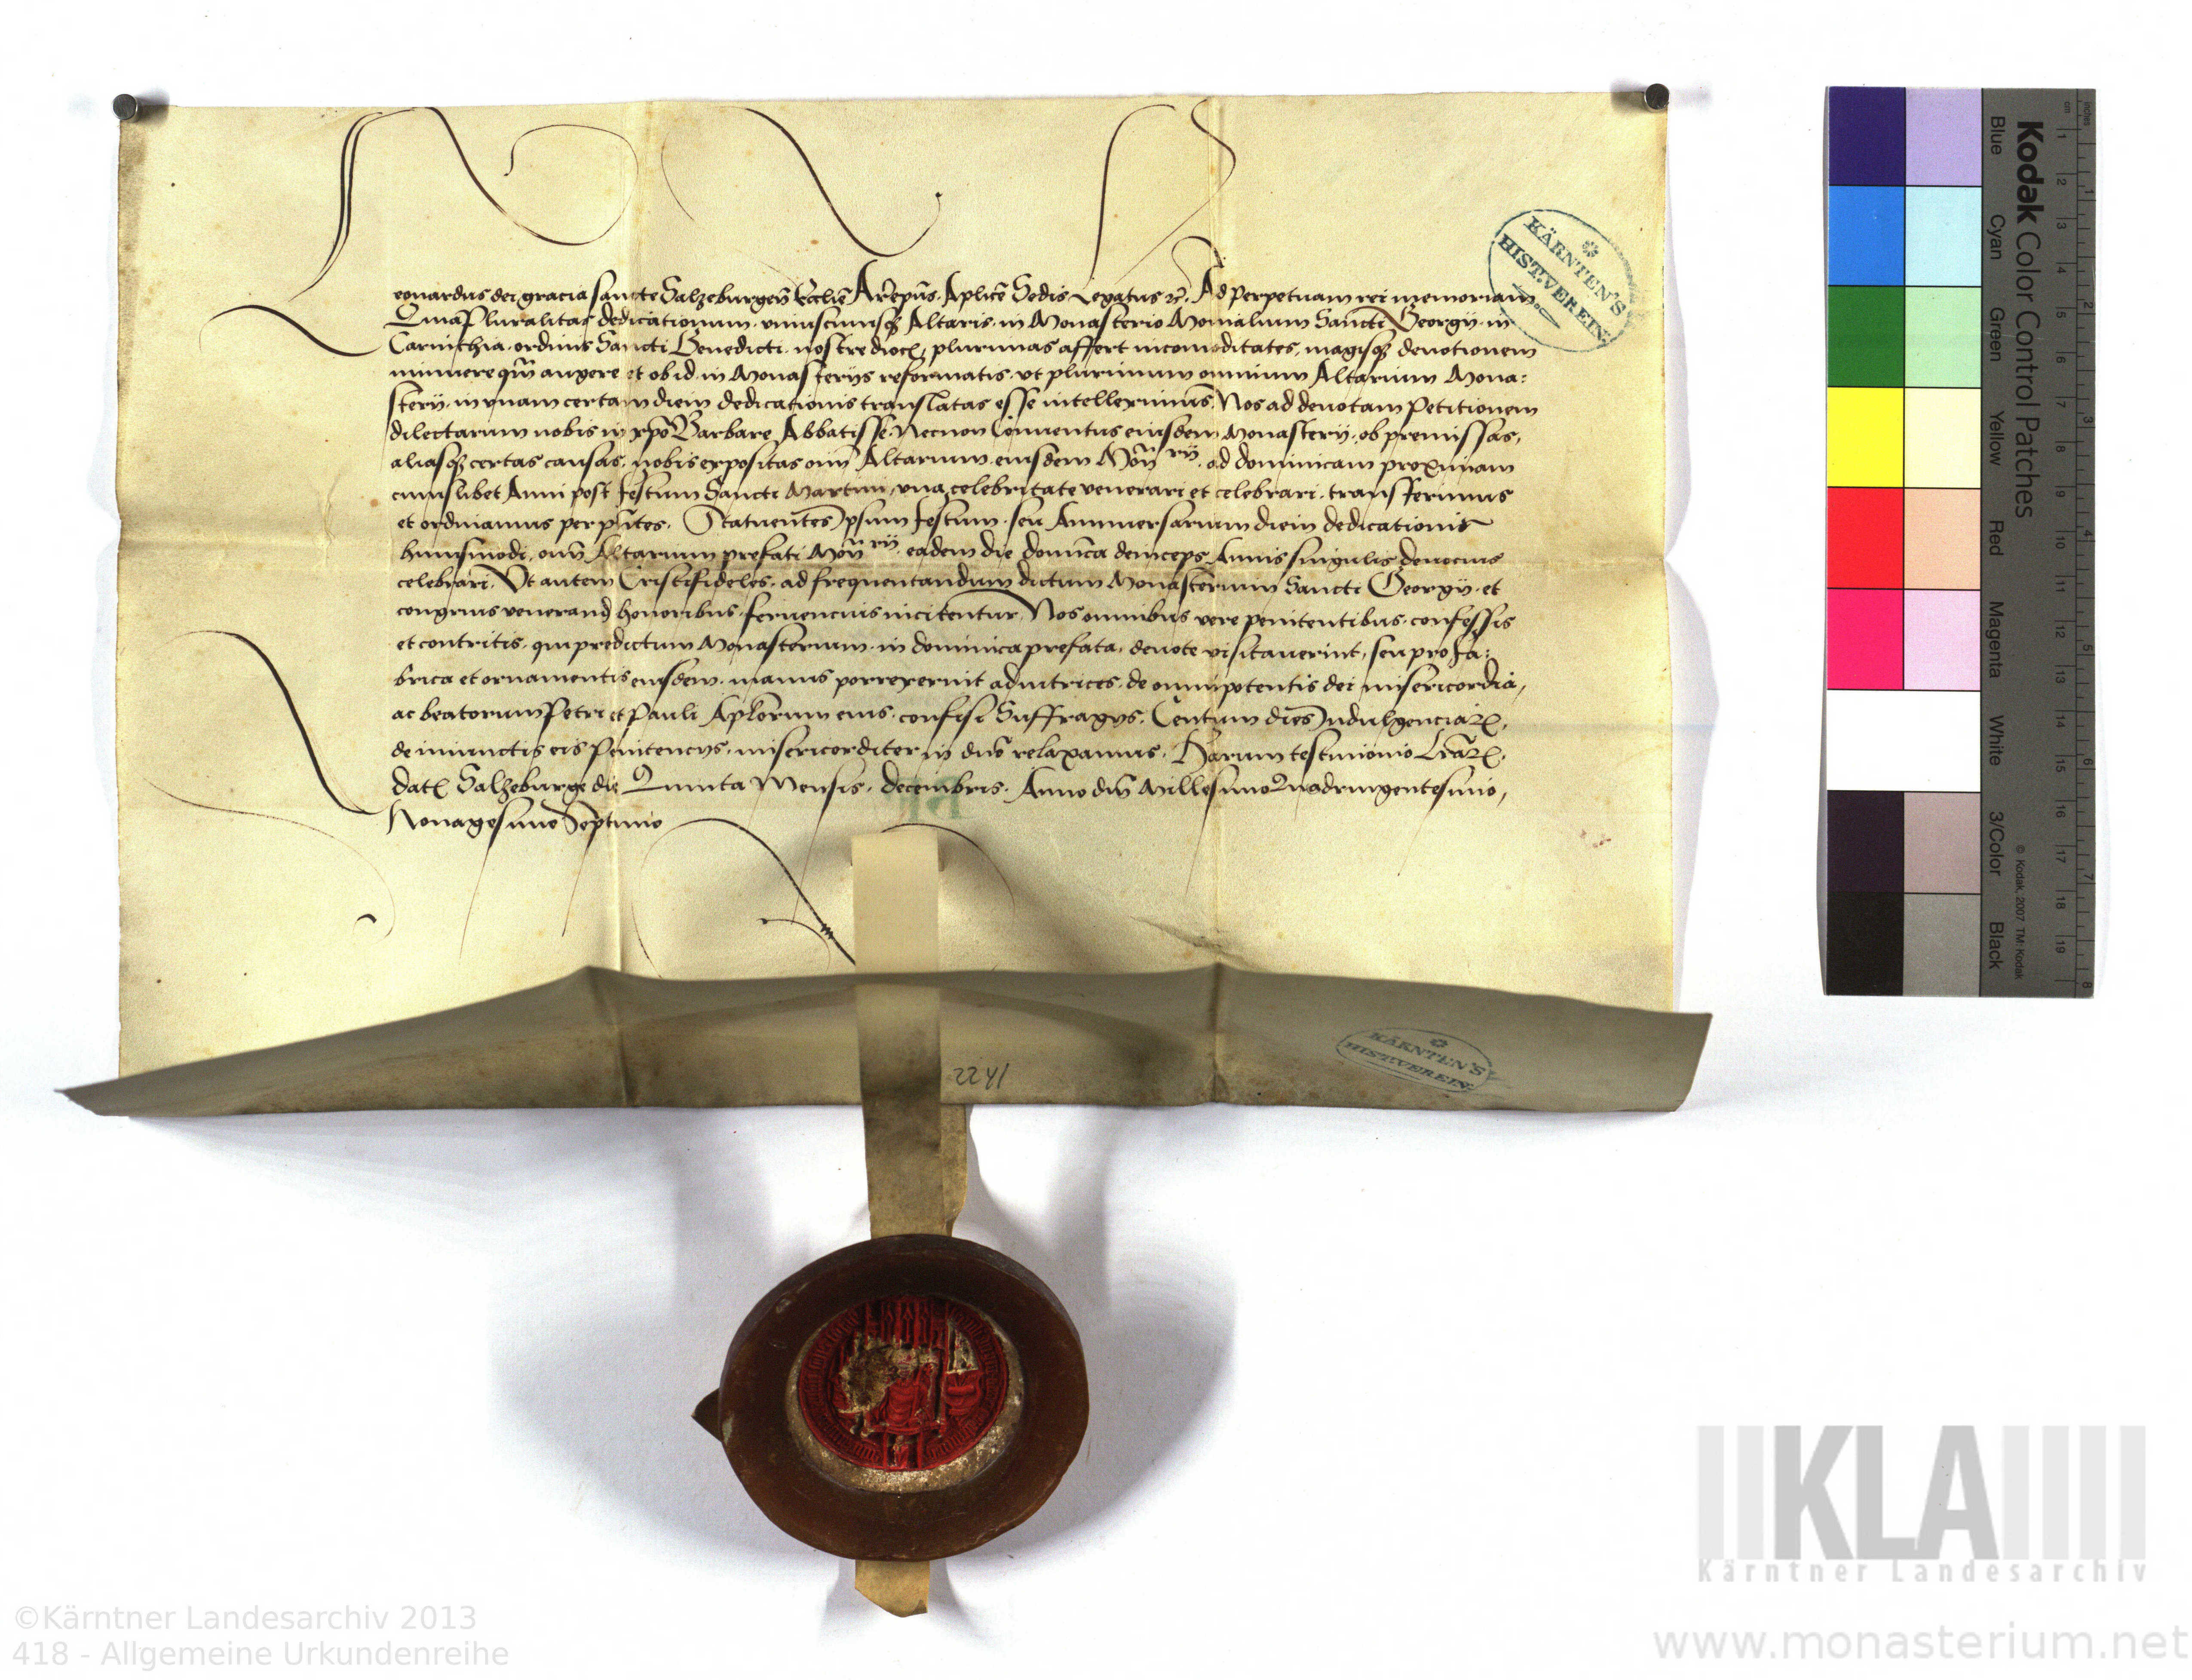 Leonardus dei gracia sancte Salzeburgen̄ Eccl̄ie Ar̄cep̄us. Aplice Sedis Legatus ⁊c̄. Ad perpetuam rei memoriam
Quia Pluralitas dedicationum uniuscuiusqꝫ Altaris in Monasterio Monialium Sancti Georgij in
Carinthia ordinis Sancti Benedicti nostre dioc̄, plurimas affert incomoditates, magisqꝫ deuotionem
minuere qm̄ augere et ob id in Monasterijs reformatis ut plurimum omnium Altarium Mona:
sterij in unam certam diem dedicationis translatas esse intelleximus. Nos ad deuotam Petitionem
dilectarum nobis in xp̄o Barbare Abbatisse Necnon Conuentus eiusdem Monasterij, ob premissas,
aliasqꝫ certas causas, nobis expositas oīm Altarium eiusdem Mon̄rij, ad dominicam proximam
cuiuslibet Anni post festum Sancti Martini, una celebritate venerari et celebrari, transferimus
et ordinamus per p̄ntes. Statuentes Ipsum festum seu Anniuersarium diem dedicationis
huiusmodi, oīm Altarium prefati Mon̄rij eadem die domīca deinceps Annis singulis deuocius
celebrari. Ut autem Cristifideles, ad frequentandum dictum Monasterium Sancti Georgij et
congruis venerand̄ honoribus, feruencius incitentur, Nos omnibus vere penitentibus, confessis
et contritis, qui predictum Monasterium in dominica prefata, deuote visitauerint, seu pro fa:
brica et ornamentis eiusdem, manus porrexerint adiutrices, de omnipotentis dei misericordia,
ac beatorum Petri et Pauli Ap̄lorum eius, confisi Suffragijs, Centum dies Indulgenciaꝝ,
de iniunctis eis Penitencijs, misericorditer in dn̄o relaxamus. Harum testimonio Lr̄aꝝ,
dat̄ Salzeburge die Quinta Mensis Decembris. Anno dn̄i Millesimo Quadringentesimo,
Nonagesimo Septimo
KÄRNTEN'S
HIST.VEREIN.
KÄRNTEN'S
HIST.VEREIN.
Kodak Color Control Patches
Blue Cyan Green Yellow Red Magenta White 3/Color Black
© Kodak, 2007 TM: Kodak
cm 1 2 3 4 5 6 7 8 9 10 11 12 13 14 15 16 17 18 19
inches 1 2 3 4 5 6 7 8
KLA
Kärntner Landesarchiv
©Kärntner Landesarchiv 2013
418 - Allgemeine Urkundenreihe
www.monasterium.net